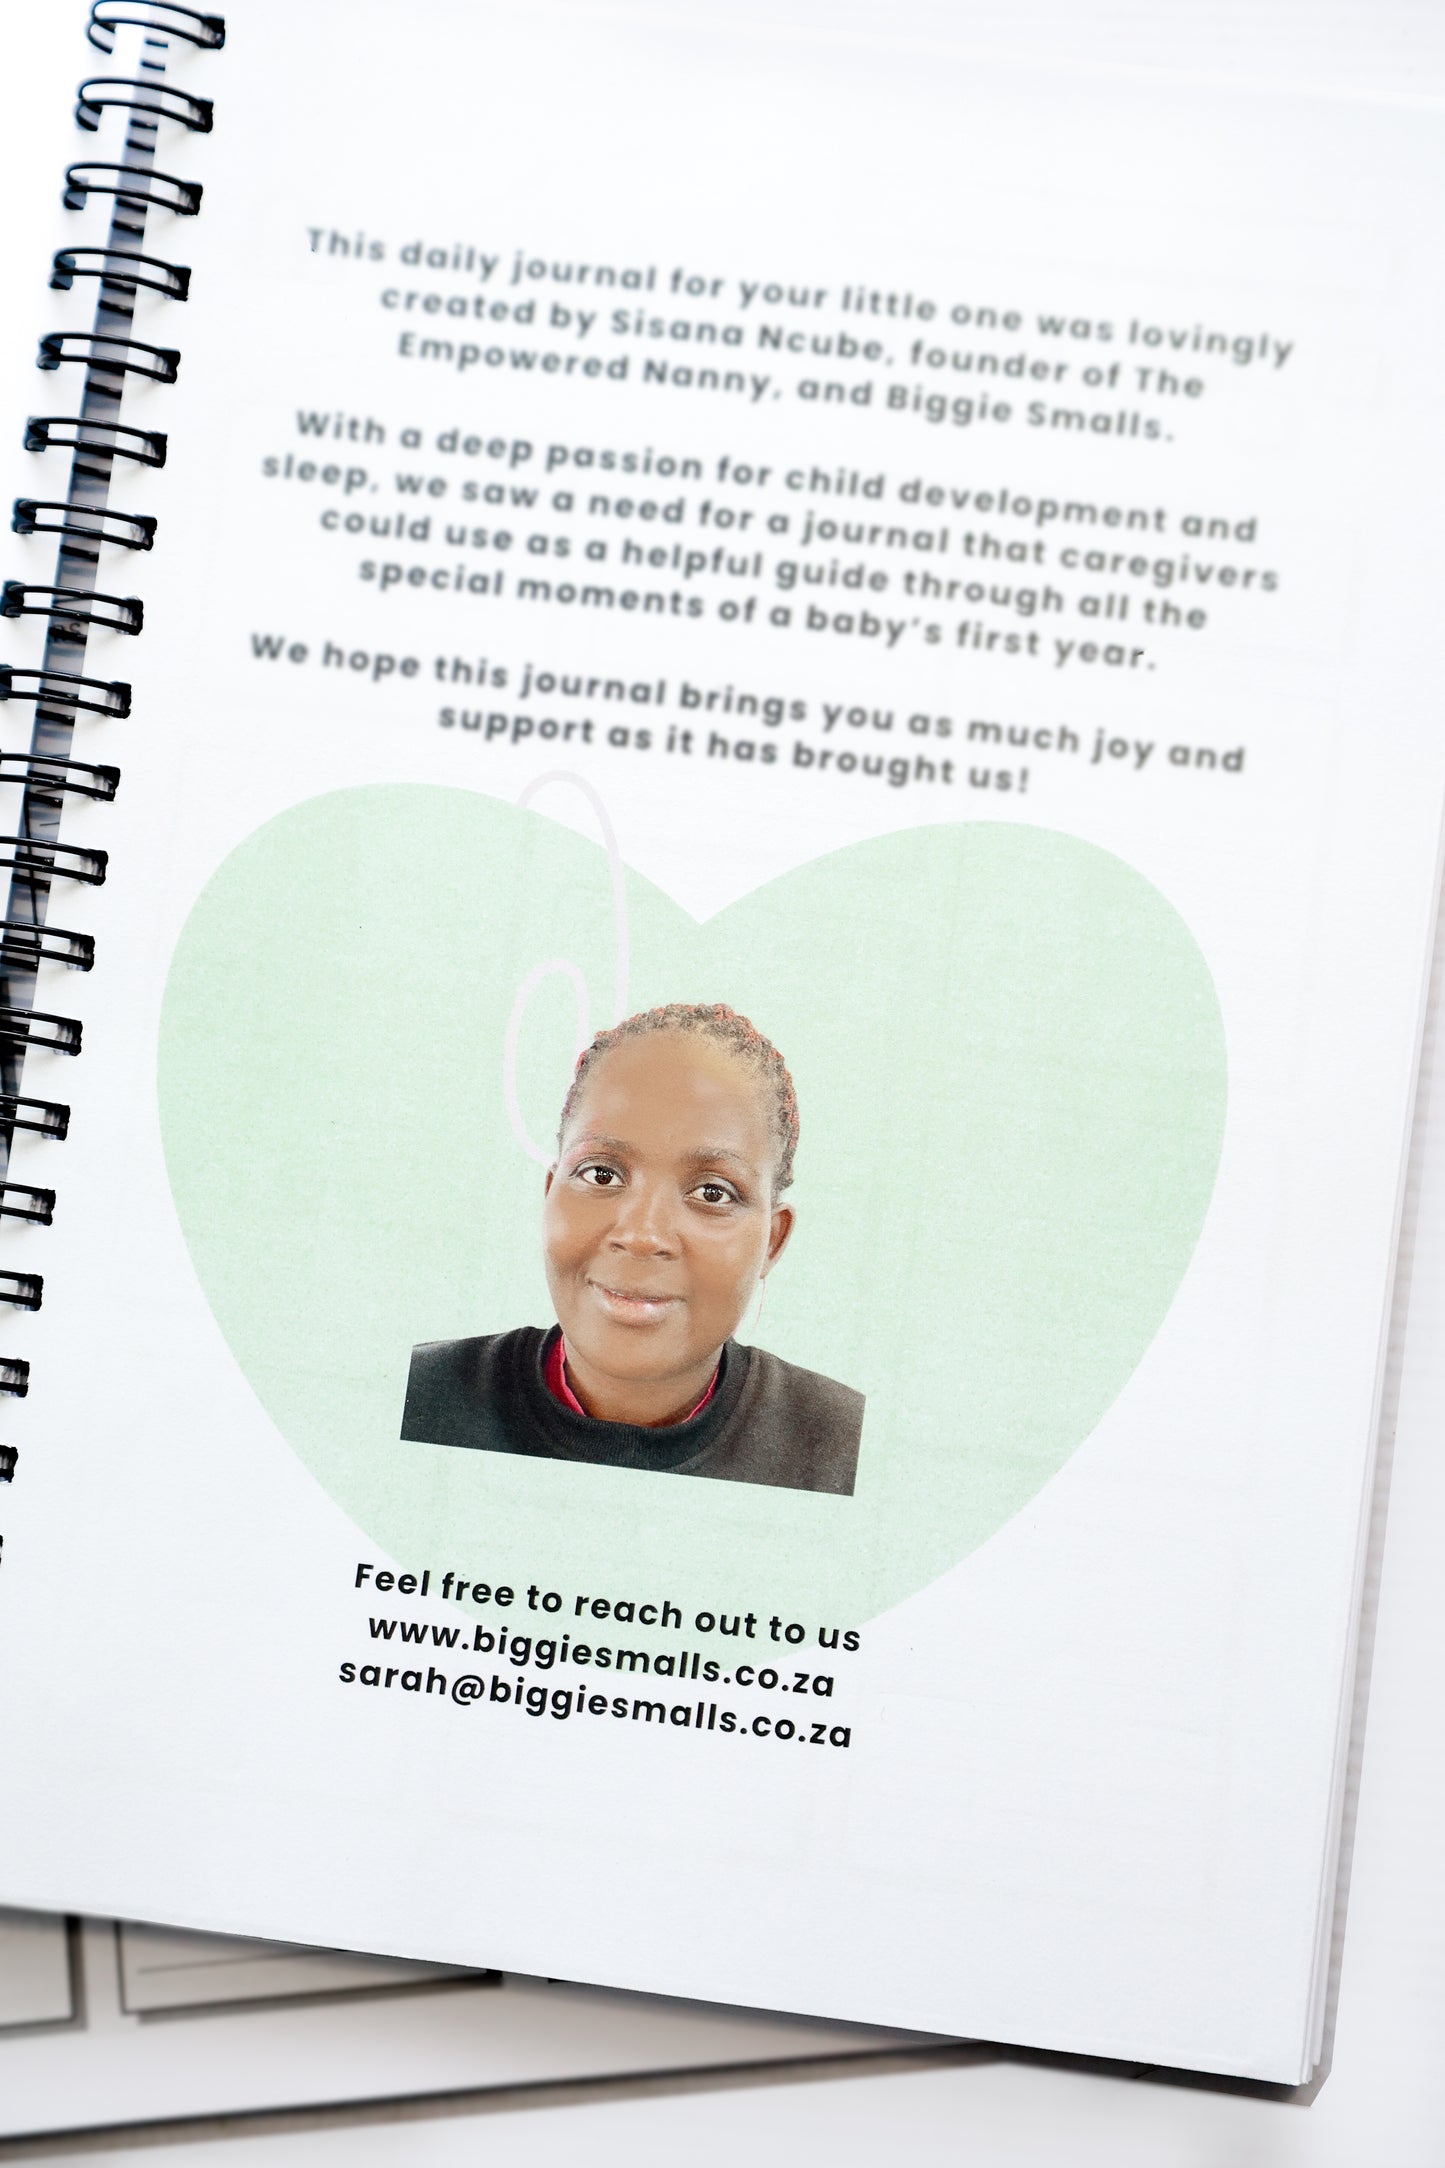 This daily journal for your little one was lovingly
created by Sisana Ncube, founder of The
Empowered Nanny, and Biggie Smalls.
With a deep passion for child development and
sleep, we saw a need for a journal that caregivers
could use as a helpful guide through all the
special moments of a baby's first year.
We hope this journal brings you as much joy and
support as it has brought us!
Feel free to reach out to us
www.biggiesmalls.co.za
sarah@biggiesmalls.co.za